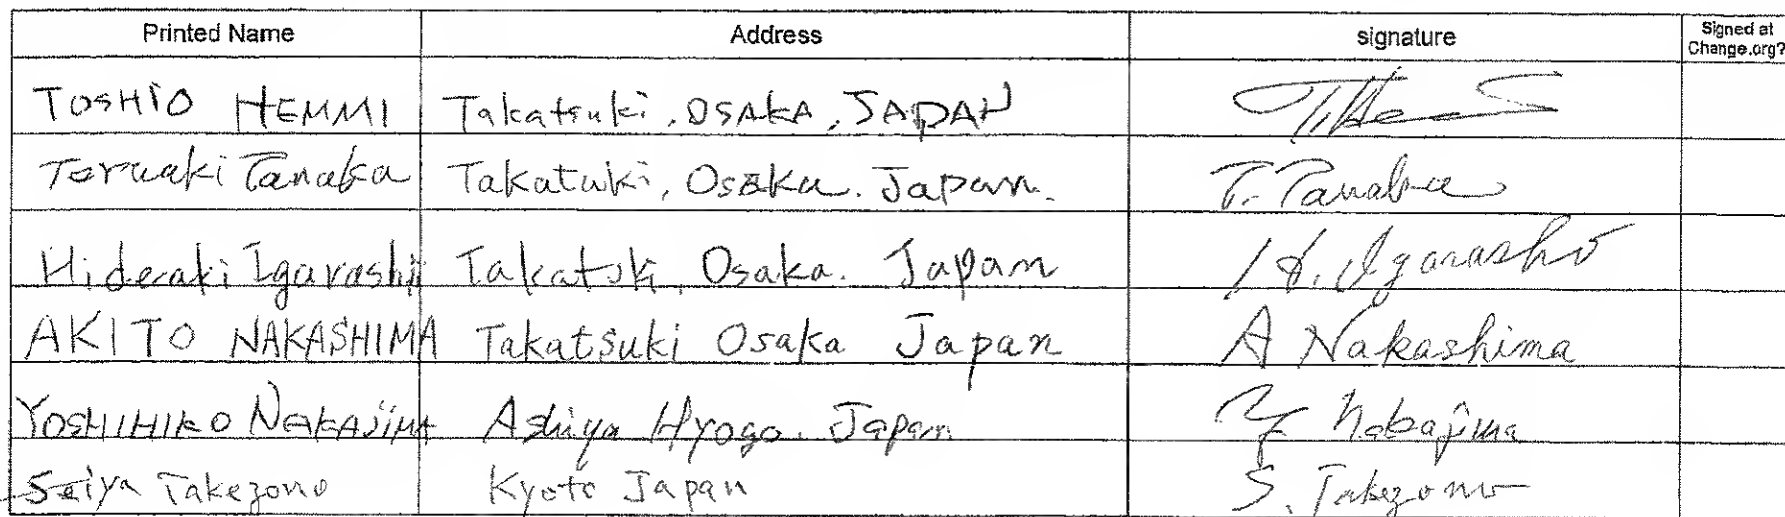 Printed Name Address signature Signed at Change.org?
TOSHIO HEMMI Takatsuki, OSAKA, JAPAN
Teruaki Tanaka Takatuki, Osaka. Japan. T. Tanaka
Hideaki Igarashi Takatski, Osaka. Japan H. Igarashi
AKITO NAKASHIMA Takatsuki Osaka Japan A Nakashima
YOSHIHIKO NAKAJIMA Ashiya Hyogo. Japan Y. Nakajima
Seiya Takezono Kyoto Japan S. Takezono